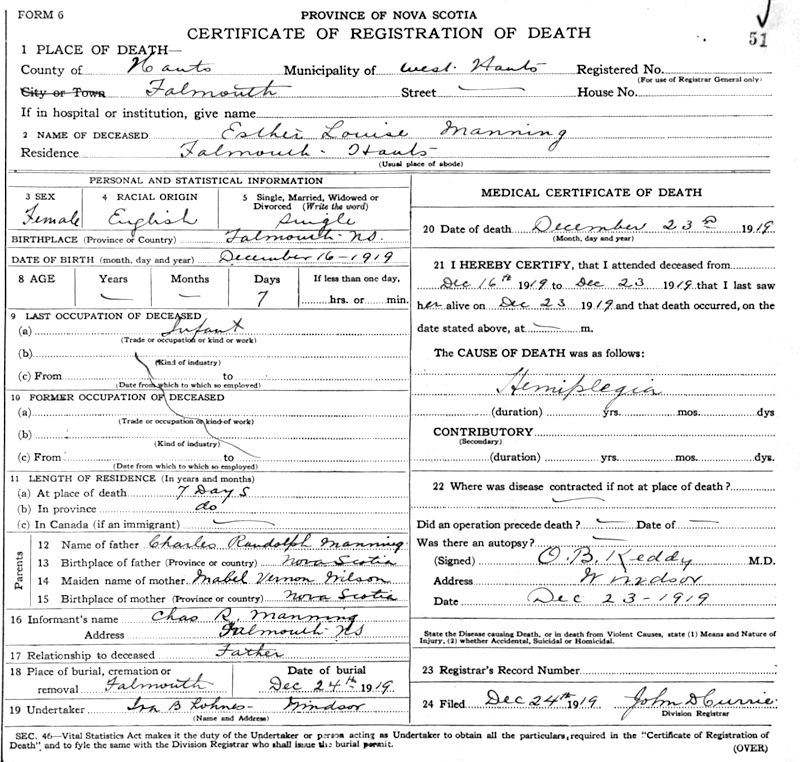 FORM 6
PROVINCE OF NOVA SCOTIA
CERTIFICATE OF REGISTRATION OF DEATH
51
1 PLACE OF DEATH—
County of Hants Municipality of West Hants Registered No.
(For use of Registrar General only)
City or Town Falmouth Street — House No.
If in hospital or institution, give name
2 NAME OF DECEASED Esther Louise Manning
Residence Falmouth - Hants
(Usual place of abode)
PERSONAL AND STATISTICAL INFORMATION
3 SEX Female
4 RACIAL ORIGIN English
5 Single, Married, Widowed or Divorced (Write the word) Single
BIRTHPLACE (Province or Country) Falmouth - N.S.
DATE OF BIRTH (month, day and year) December 16 - 1919
8 AGE Years Months Days If less than one day,
— — 7 hrs. or min.
9 LAST OCCUPATION OF DECEASED
(a) Infant
(Trade or occupation or kind or work)
(b)
(Kind of industry)
(c) From to
(Date from which to which so employed)
10 FORMER OCCUPATION OF DECEASED
(a)
(Trade or occupation or kind of work)
(b)
(Kind of industry)
(c) From to
(Date from which to which so employed)
11 LENGTH OF RESIDENCE (In years and months)
(a) At place of death 7 Days
(b) In province do
(c) In Canada (if an immigrant) —
Parents
12 Name of father Charles Randolph Manning
13 Birthplace of father (Province or country) Nova Scotia
14 Maiden name of mother Mabel Vernon Wilson
15 Birthplace of mother (Province or country) Nova Scotia
16 Informant's name Chas R. Manning
Address Falmouth NS
17 Relationship to deceased Father
18 Place of burial, cremation or removal Falmouth
Date of burial Dec 24th 1919
19 Undertaker Ira B Lohnes - Windsor
(Name and Address)
MEDICAL CERTIFICATE OF DEATH
20 Date of death December 23rd 1919
(Month, day and year)
21 I HEREBY CERTIFY, that I attended deceased from
Dec 16th 1919 to Dec 23 1919 that I last saw
her alive on Dec 23 1919 and that death occurred, on the
date stated above, at — m.
The CAUSE OF DEATH was as follows:
Hemiplegia
(duration) yrs. mos. dys
CONTRIBUTORY
(Secondary)
(duration) yrs. mos. dys.
22 Where was disease contracted if not at place of death?
—
Did an operation precede death? — Date of —
Was there an autopsy? —
(Signed) O.B. Keddy M.D.
Address Windsor
Date Dec 23 - 1919
State the Disease causing Death, or in death from Violent Causes, state (1) Means and Nature of
Injury, (2) whether Accidental, Suicidal or Homicidal.
23 Registrar's Record Number
24 Filed Dec 24th 1919 John D Currie
Division Registrar
SEC. 46—Vital Statistics Act makes it the duty of the Undertaker or person acting as Undertaker to obtain all the particulars, required in the "Certificate of Registration of
Death" and to fyle the same with the Division Registrar who shall issue the burial permit.
(OVER)